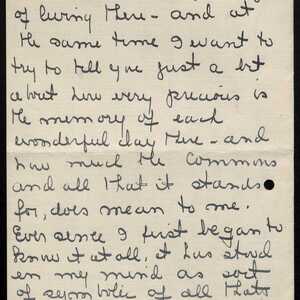 of living there - and at
the same time I want to
try to tell you just a bit
about how very precious is
the memory of each
wonderful day there - and
how much the Commons
and all that it stands
for, does mean to me.
Ever since I first began to
know it at all, it has stood
in my mind as sort
of symbolic of all that